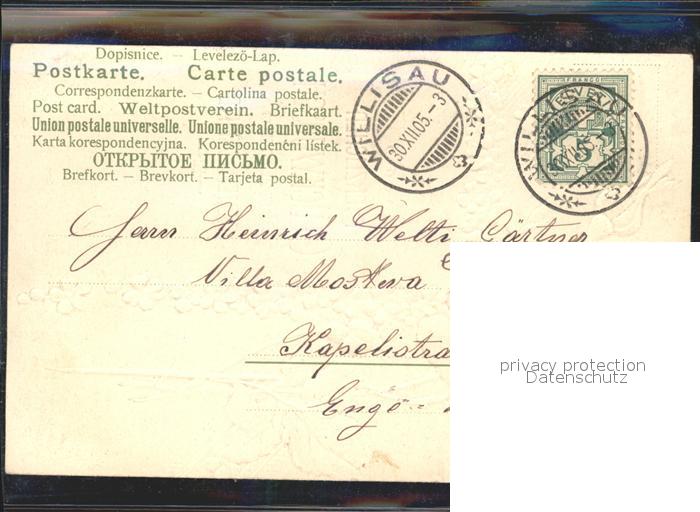 Dopisnice. – Levelező-Lap.
Postkarte. Carte postale.
Correspondenzkarte. – Cartolina postale.
Post card. Weltpostverein. Briefkaart.
Union postale universelle. Unione postale universale.
Karta korespondencyjna. Korespondenční lístek.
ОТКРЫТОЕ ПИСЬМО.
Brefkort. – Brevkort. – Tarjeta postal.
WILLISAU
30.XII.05.–3
FRANCO
5
Herrn Heinrich Welti Gärtner
Villa Moskova
Kapellstra
Enge =
privacy protection
Datenschutz